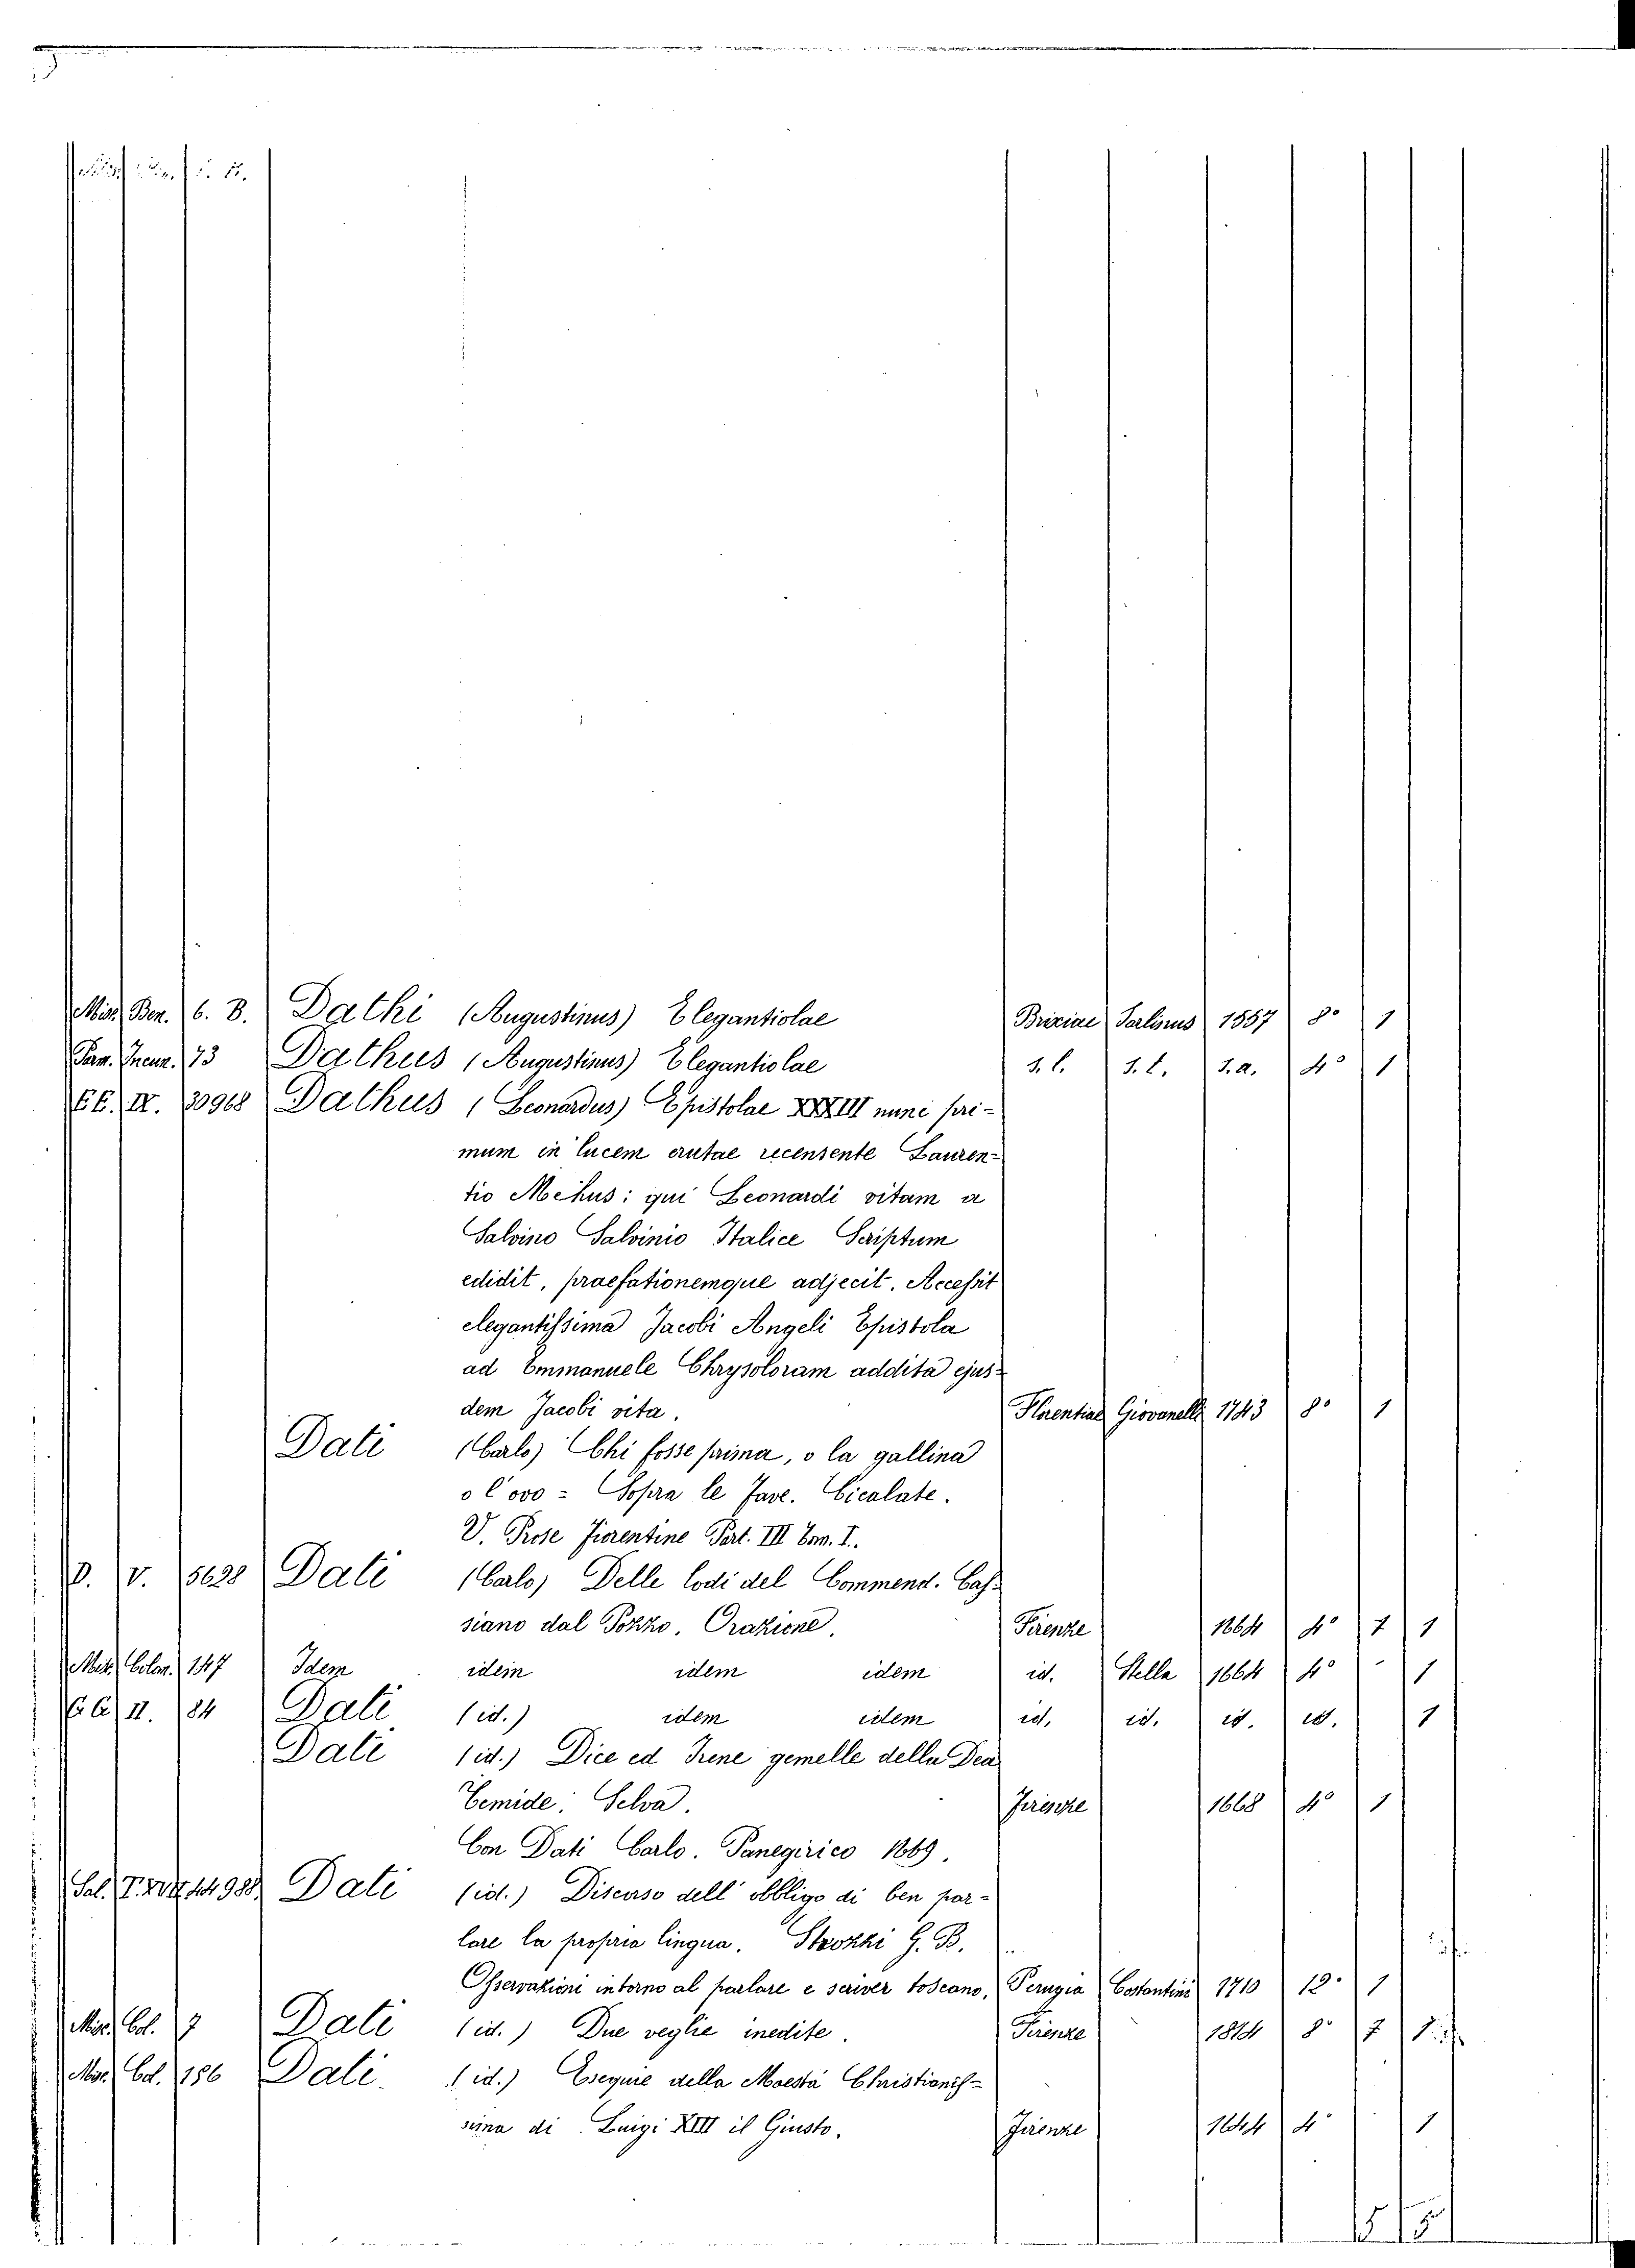 Mis. Ben. 6. 8. Dathi (Augustinus) Elegantiolae Brixiae Turlinus 1557 8° 1
Pan. Incun. 73 Dathus (Augustinus) Elegantiolae s. l. s. t. s. a. 4° 1
EE. IX. 20968 Dathus (Leonardus) Epistolae XXXIII nunc pri-
mum in lucem erutae recensente Lauren-
tio Mehus: qui Leonardi vitam a
Salvino Salvinio Italice Scriptum
edidit, praefationemque adjecit. Accessit
elegantissima Jacobi Angeli Epistola
ad Emmanuele Chrysoloram addita ejus-
dem Jacobi vita. Florentiae Giovanelli 1743 8° 1
Dati (Carlo) Chi fosse prima, o la gallina
o l'ovo = Sopra le Fave. Cicalate.
V. Prose Fiorentine Part. III Tom. I.
D. V. 5628 Dati (Carlo) Delle lodi del Commend. Cas-
siano dal Pozzo. Orazione. Firenze 1664 4° 7 1
Colon. 147 Idem idem idem idem id. Stella 1664 4° 1
II. 84 Dati (id.) idem idem id. id. id. id. 1
Dati (id.) Dice ed Irene gemelle della Dea
Temide. Selva. Firenze 1668 4° 1
Con Dati Carlo. Panegirico 1669.
Sal. Dati (id.) Discorso dell' obbligo di ben par-
lare la propria lingua. Strozzi G. B.
Osservazioni intorno al parlare e scriver toscano. Perugia Costantini 1710 12° 1
Mis. Col. 7 Dati (id.) Due veglie inedite. Firenze 1814 8° 7 1
Mis. Col. 186 Dati. (id.) Esequie della Maestà Christianis-
sima di Luigi XIII il Giusto. Firenze 1644 4° 1
15